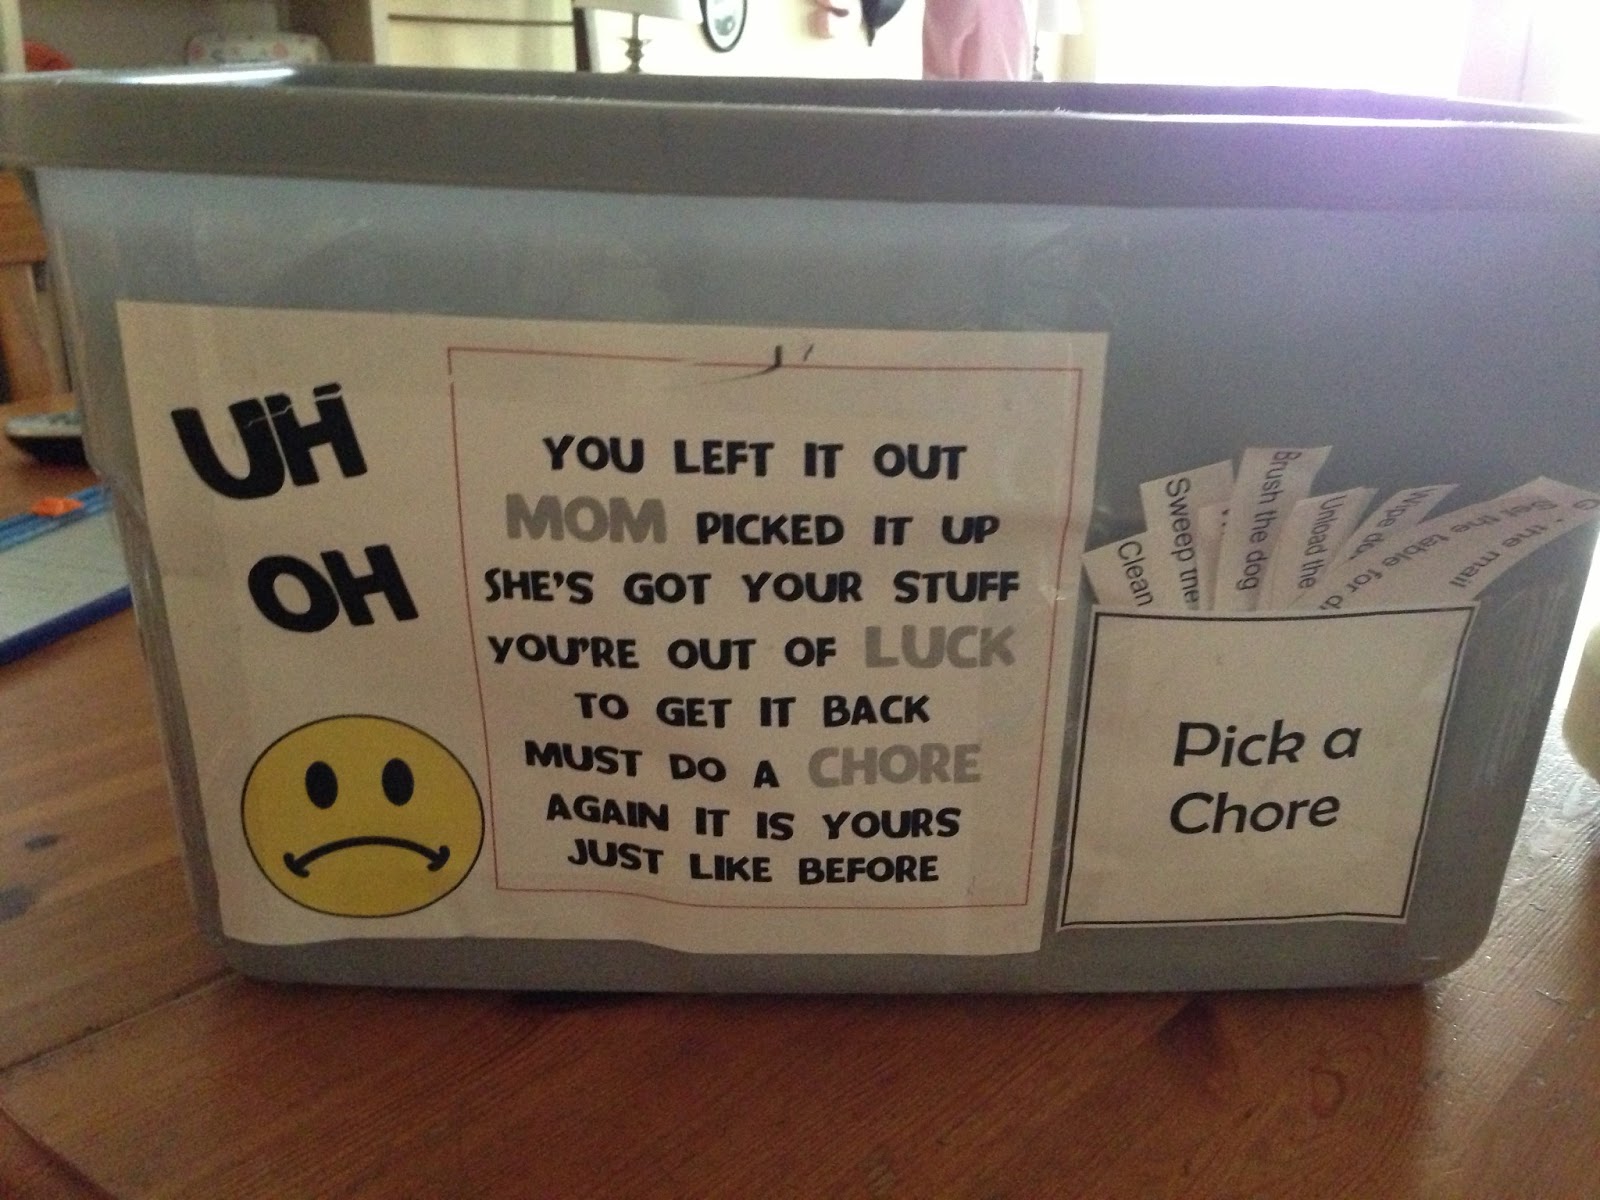 UH
OH
YOU LEFT IT OUT
MOM PICKED IT UP
SHE'S GOT YOUR STUFF
YOU'RE OUT OF LUCK
TO GET IT BACK
MUST DO A CHORE
AGAIN IT IS YOURS
JUST LIKE BEFORE
Clean
Sweep the
Brush the dog
Unload the
Wipe do
Set the table for d
the mail
Pick a
Chore